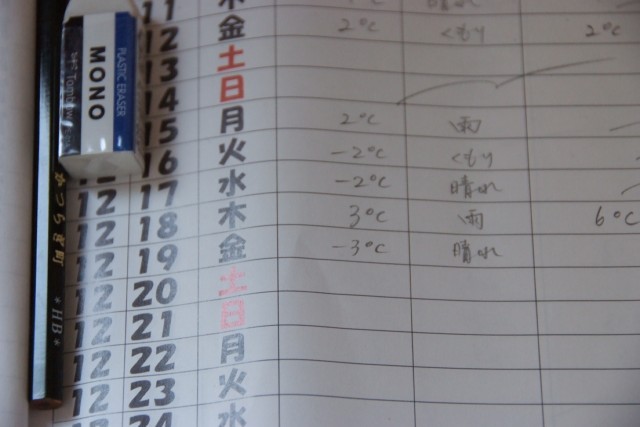 11 木
12 金 2°C くもり 2°C
13 土
14 日
15 月 2°C 雨
16 火 -2°C くもり
12 17 水 -2°C 晴れ
12 18 木 3°C 雨 6°C
12 19 金 -3°C 晴れ
12 20 土
12 21 日
12 22 月
12 23 火
24 水
PLASTIC ERASER
MONO
Tombow
かつらぎ町 *HB*